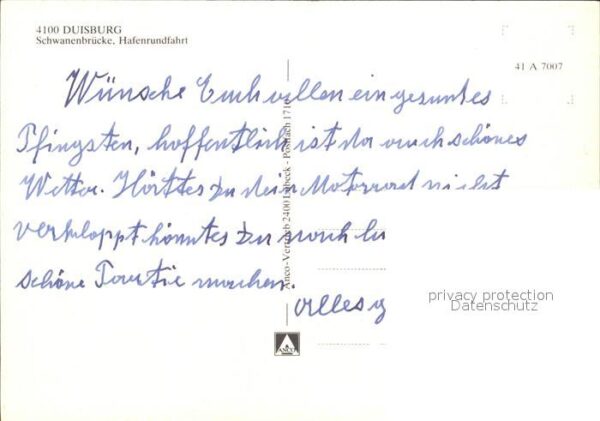 4100 DUISBURG
Schwanenbrücke, Hafenrundfahrt
41 A 7007
Wünsche Euch allen ein gesuntes
Pfingsten, hoffentlich ist da auch schönes
Wetter. Hörttes Du dein Motorrad nicht
verkloppt könntes Du noch
schöne Tourtie machen.
alles
Anco-Vertrieb 2400 Lübeck - Postfach 1716
ANCO
privacy protection
Datenschutz